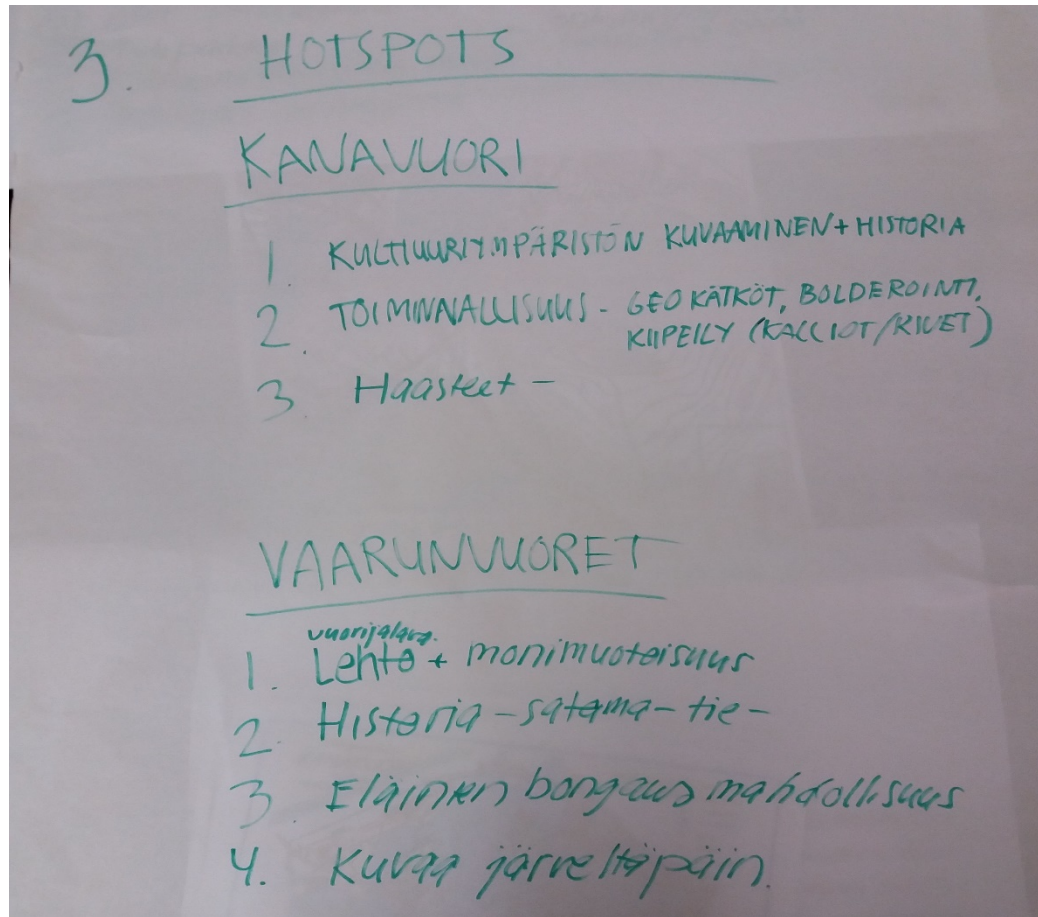 3. HOTSPOTS
KANAVUORI
1. KULTTUURIYMPÄRISTÖN KUVAAMINEN + HISTORIA
2. TOIMINNALLISUUS - GEOKÄTKÖT, BOLDEROINTI,
KIIPEILY (KALLIOT/KIVET)
3. Haasteet -
VAARUNVUORET
vuorijalava.
1. Lehto + monimuotoisuus
2. Historia - satama - tie -
3. Eläinen bongaus mahdollisuus
4. Kuvaa järveltäpäin.